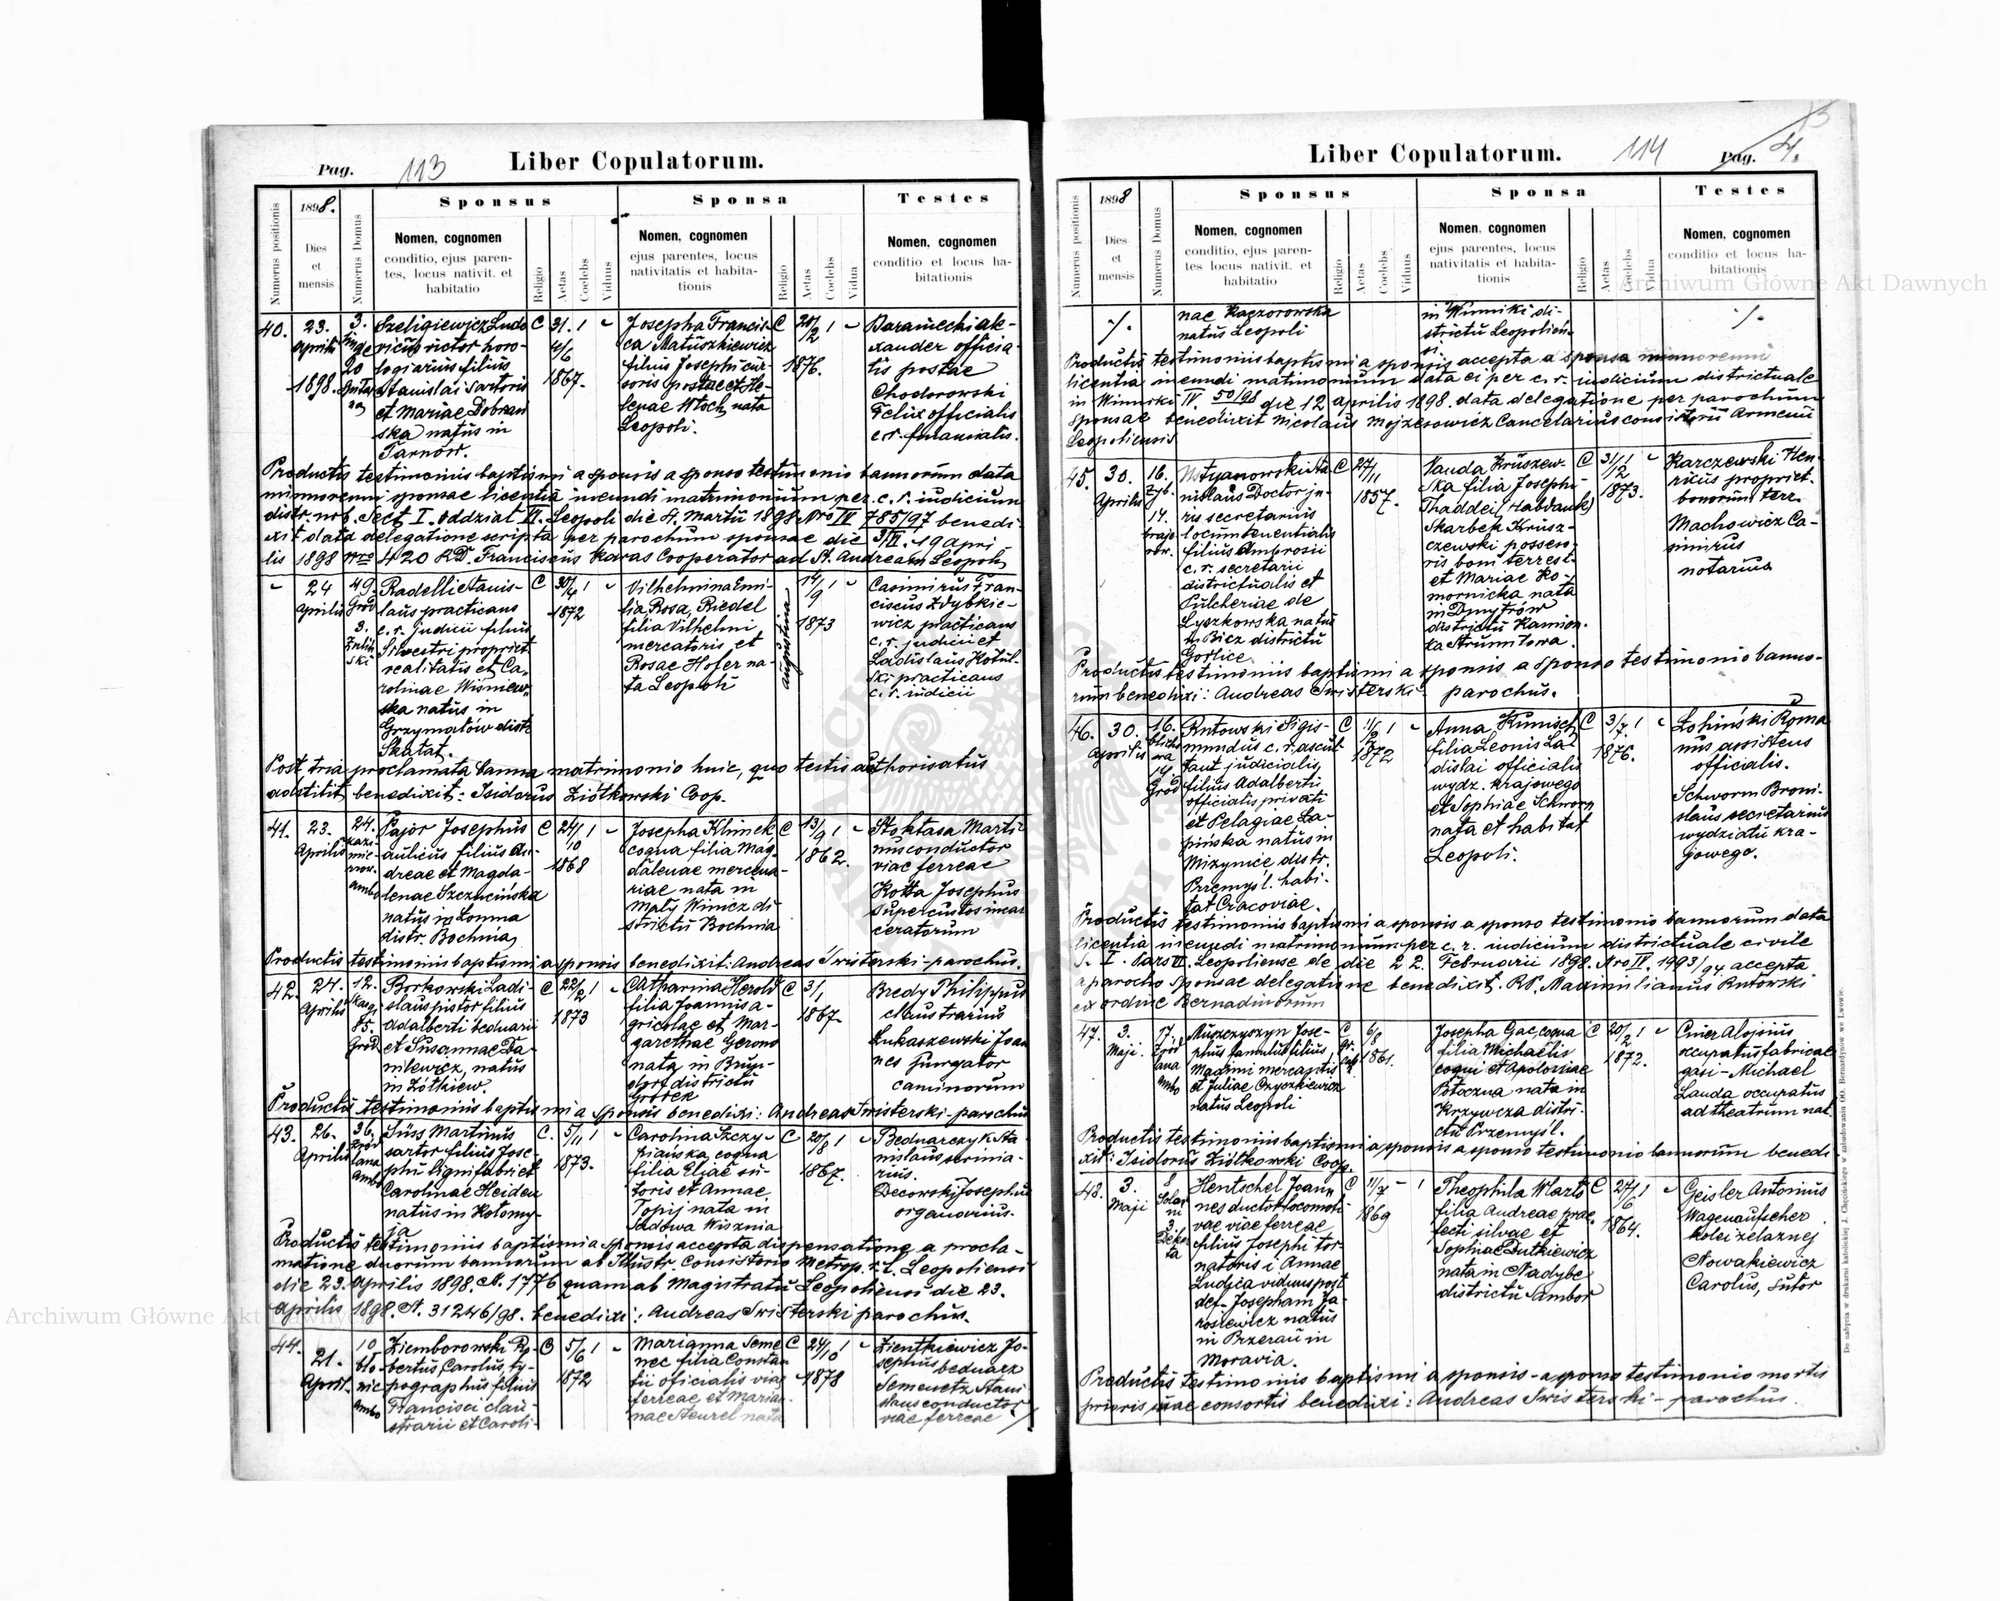 Pag. 113
Liber Copulatorum.
Numerus positionis
1898.
Dies
et
mensis
Numerus Domus
Sponsus
Nomen, cognomen
conditio, ejus paren-
tes, locus nativit. et
habitatio
Religio
Aetas
Coelebs
Viduus
Sponsa
Nomen, cognomen
ejus parentes, locus
nativitatis et habita-
tionis
Religio
Aetas
Coelebs
Vidua
Testes
Nomen, cognomen
conditio et locus ha-
bitationis
40.
23.
Aprilis
1898.
3.
20
Szeligiewicz Ludo
vicus victor horo-
logiarius filius
Stanislai Sartoris
et Mariae Dobrzań
ska natus in
Tarnów.
C
31. 1
4/6
1867.
Josepha Francis-
ca Matuszkiewicz
filius Josephi cur-
soris postae et He-
lenae Włoch nata
Leopoli.
C
20/2 1
1876.
Baraniecki Ale-
xander officia-
lis postae
Chodorowski
Felix officialis
c. r. financialis.
Productis testimoniis baptismi a sponsis a sponso testimonio bannorum data
minnorenni sponsae licentia ineundi matrimonium per c. r. iudicium
distr. urb. Sect I. Oddział VI. Leopoli die 4. Martii 1898 Nro IV 785/97 benedi-
xit data delegatione scripta per parochum sponsae die 19 Apri
lis 1898 Nro 420 RD. Franciscus Karas Cooperator ad St. Andream Leopoli
24
Aprilis
49.
Gród
3.
Zieliń
ski
Radelli Stanis-
laus practicans
c. r. judicii filius
Silvestri propriet.
realitatis et Ca-
rolinae Wiśniew-
ska natus in
Grzymałów distr.
Skałat.
C
30/4 1
1872
Vilhelmina Emi-
lia Rosa, Riedel
filia Vilhelmi
mercatoris et
Rosae Hofer na-
ta Leopoli
augustana
14/9 1
1873
Casimirus Fran-
ciscus Zdybkie-
wicz practicans
c. r. judicii et
Ladislaus Kotul-
ski practicans
c. r. iudicii
Post tria proclamata banna matrimonio huic, quo testis authorisatus
adstitit benedixit: Isidorus Ziółkowski Coop.
41.
23.
Aprilis
24.
Kazi-
mie-
rzow.
ambo
Pajor Josephus
aulicus filius An-
dreae et Magda-
lenae Szczucińska
natus in Łomna
distr. Bochnia,
C
24/10 1
1868
Josepha Klimek
coqua filia Mag-
dalenae mercena-
riae nata in
Mały Wiśnicz di-
strictu Bochnia
C
13/9 1
1862.
Stokłasa Marti-
nus conductor
viae ferreae
Kotta Josephus
supercustos incar
ceratorum
Productis testimoniis baptismi a sponsis benedixit: Andreas Swisterski - parochus.
42.
24.
Aprilis
12.
Skarg.
85.
Gród.
Borkowski Ladi-
slaus pistor filius
Adalberti beduarii
et Susannae Da-
nilewicz, natus
in Żółkiew.
C
22/2 1
1873
Catharina Herold
filia Joannis a-
gricolae et Mar-
garethae Gerono
nata in Brun-
dorf districtu
Gródek
C
3/1
1867.
Bredy Philippus
claustrarius
Łukaszewski Joan
nes Purgator
caminorum
Productis testimoniis baptismi a sponsis benedixi: Andreas Swisterski - parochus
43.
26.
Aprilis
36.
Źród
lana
ambo
Süss Martinus
sartor filius Jose-
phi lignifabri et
Carolinae Heiden
natus in Kołomy-
ja
C.
5/11 1
1873.
Carolina Szczy-
piańska, coqua
filia Eliae su-
toris et Annae,
Popij nata in
Sądowa Wisznia
C
20/8 1
1867.
Bednarczyk Sta-
nislaus scrinia-
rius.
Decowski Josephus
organarius.
Productis testimoniis baptismi a sponsis accepta dispensatione a procla-
matione duorum bannorum ab Illustr. Consistorio Metrop. r. l. Leopoliensi
die 23. Aprilis 1898. N. 1776 quam ab Magistratu Leopoliensi die 23.
Aprilis 1898. N. 31246/98. benedixi: Andreas Swisterski parochus.
44.
21.
April.
10
bło-
nie
ambo
Ziemborowski Ro-
bertus, Carolus, ty-
pographus filius
Francisci clau-
strarii et Caroli-
C
5/6 1
1872
Marianna Seme
nec filia Constan
tii oficialis viae
ferreae et Marian-
nae Aeurel nata
C
24/10 1
1878
Zientkiewicz Jo-
sephus bednarz
Semenetz Stani
slaus conductor
viae ferreae ./.
Liber Copulatorum.
114
Pag. 4.
Numerus positionis
1898
Dies
et
mensis
Numerus Domus
Sponsus
Nomen, cognomen
conditio, ejus paren-
tes, locus nativit. et
habitatio
Religio
Aetas
Coelebs
Viduus
Sponsa
Nomen, cognomen
ejus parentes, locus
nativitatis et habita-
tionis
Religio
Aetas
Coelebs
Vidua
Testes
Nomen, cognomen
conditio et locus ha-
bitationis
./.
nae Kaczorowska
natus Leopoli
in Winniki di-
strictu Leopolien-
si.
./.
Productis testimoniis baptismi a sponsis accepta a sponsa minnorenni
licentia ineundi matimonium data ei per c. r. iudicium districtuale
in Winniki IV. 50/98 die 12 Aprilis 1898. data delegatione per parochum
sponsae benedixit Nicolaus Mojzesowicz Cancelarius consistorii Armenii
Leopoliensis
45.
30.
Aprilis
16.
Zyb.
14.
Kraje-
ow.
nislaus Doctor ju-
ris secretarius
locumtenentialis
filius Ambrosii
c. r. secretarii
districtualis et
Pulcheriae de
Łyszkowska natus
in Biecz districtu
Gorlice
C
27/11
1857.
Vanda Kruszew-
ska filia Josephi-
Thaddei Habdank
Skarbek Krusz-
czewski posseso-
ris boni terrest.
et Mariae Ko-
mornicka nata
in Dmytrów
districtu Kamion-
ka Strumiłowa.
C
31/12 1
1873.
Karczewski Hen-
ricus propriet.
bonorum terr.
Machowicz Ca-
simirus
notarius
Productis testimoniis baptismi a sponsis a sponso testimonio banno-
rum benedixi: Andreas Swisterski parochus.
46.
30.
Aprilis
16.
14.
Gród
Rutowski Sigis-
mundus c. r. ascul-
tant judicialis,
filius Adalberti
officialis privati
et Pelagiae Ła-
pińska natus in
Mizyniec distr.
Przemyśl. habi-
tat Cracoviae.
C
11/2 1
1872
Anna Kunisch
filia Leonis La-
dislai officialis
wydz. krajowego
et Sophiae Schworm
nata et habitat
Leopoli.
C
3/7. 1
1876.
Łohiński Roma
nus assistens
officialis.
Schworm Broni-
slaus secretarius
wydziału kra-
jowego.
Productis testimoniis baptismi a sponsis a sponso testimonio bannorum data
licentia ineundi matrimonium per c. r. iudicium districtuale civile
S. I. Pars II. Leopoliense de die 22. Februarii 1898. Nro IV. 1993/97 accepta
a parocho sponsae delegatione benedixit. RP. Maximilianus Rutowski
ex ordine Bernadinorum
47.
3.
Maji.
17.
Źród
lana
ambo
Muszczyszyn Jose-
phus famulus filius
Maximi mercatoris
et Juliae Czyczkiewicz
natus Leopoli
C
gr.
cat.
6/8
1861.
Josepha Gac, coqua
filia Michaelis
coqui et Apoloniae
Potoczna nata in
Krzywcza distri-
ctu Przemyśl.
C
20/2 1
1872.
Cwier Alojsius
occupatus fabricae
gasi - Michael
Lauda occupatus
ad theatrum nat.
Productis testimoniis baptismi a sponsis a sponso testimonio bannorum benedi-
xit: Isidorus Ziółkowski Coop.
48.
3.
Maji
8
Solar
ni
3.
Deker
ta
Hentschel Joan-
nes ductor locomoti-
vae viae ferreae
filius Josephi tor-
natoris i Annae
Ludjca viduus post
def. Josepham Ja-
rosiewicz natus
in Przerau in
Moravia.
C
11/7 - 1
1869
Theophila Warto
filia Andreae prae
fecti silvae et
Sophiae Dutkiewicz
nata in Nadybe
districtu Sambor
C
27/6 1
1864.
Geisler Antonius
Wagenaufseher
kolei żelaznej
Nowakiewicz
Carolus, Sutor
Productis testimoniis baptismi a sponsis - a sponso testimonio mortis
prioris suae consortis benedixi: Andreas Swisterski - parochus.
Do nabycia w drukarni katolickiej J. Chęcińskiego w zabudowaniu OO. Bernardynów we Lwowie.
Archiwum Główne Akt Dawnych
Archiwum Główne Akt Dawnych